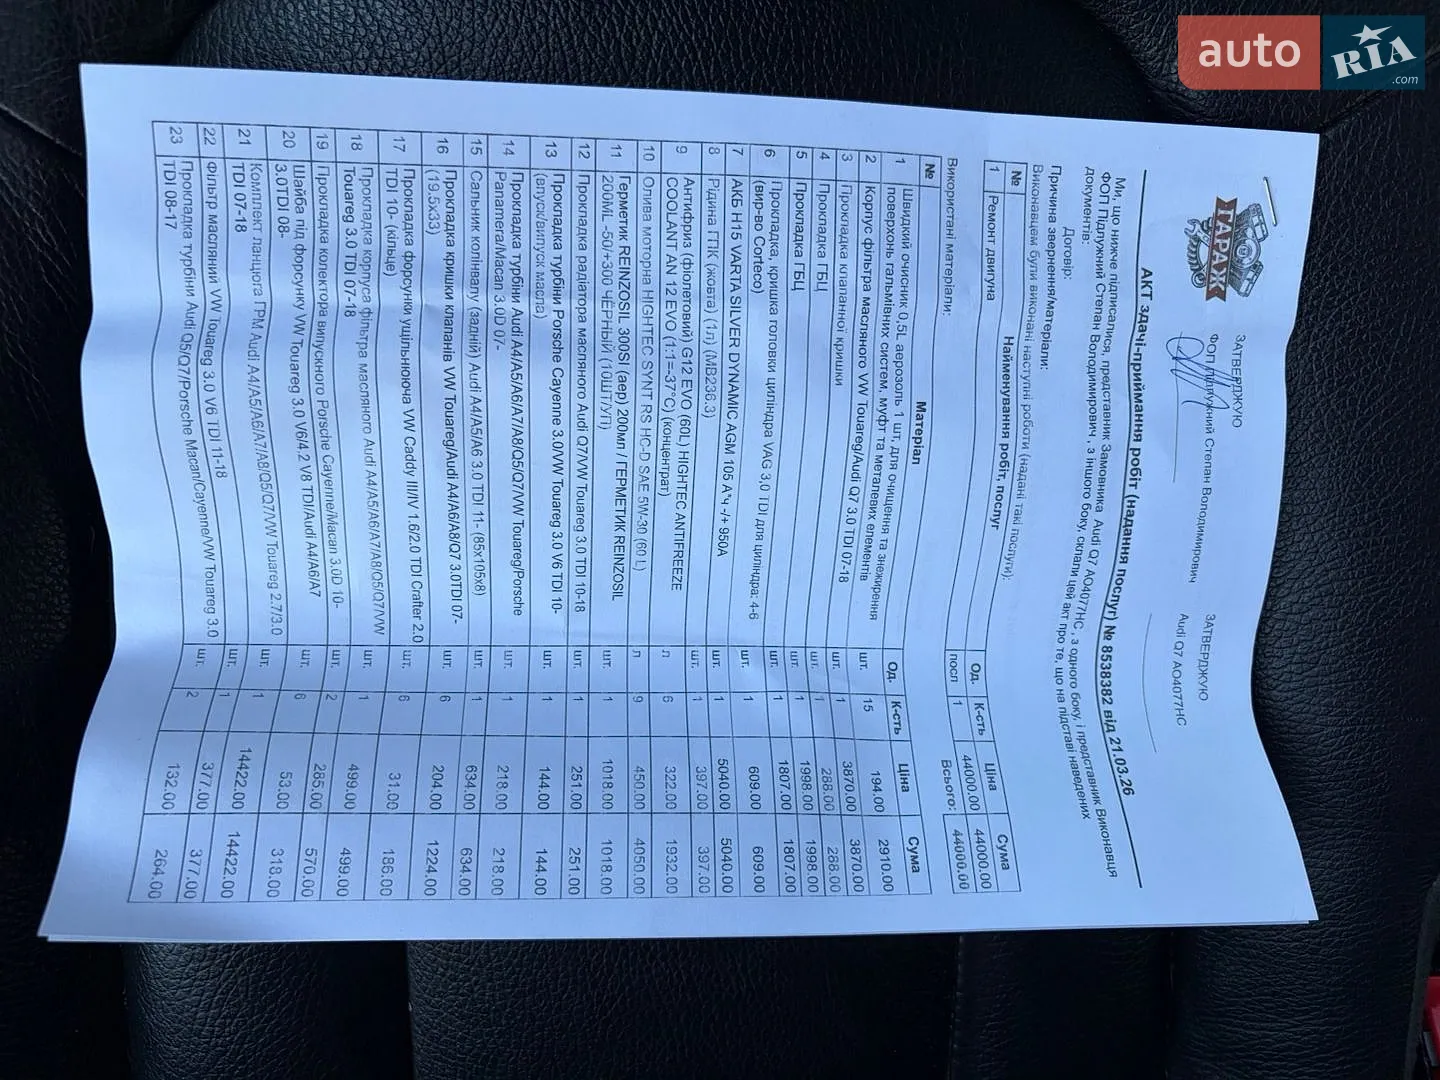 auto RIA .com
ГАРАЖ
ЗАТВЕРДЖУЮ
ФОП Підлужний Степан Володимирович
ЗАТВЕРДЖУЮ
Audi Q7 AO4077HC
АКТ здачі-приймання робіт (надання послуг) № 8538382 від 21.03.26
Ми, що нижче підписалися, представник Замовника Audi Q7 AO4077HC , з одного боку, і представник Виконавця
ФОП Підлужний Степан Володимирович , з іншого боку, склали цей акт про те, що на підставі наведених
документів:
Договір:
Причина звернення/матеріали:
Виконавцем були виконані наступні роботи (надані такі послуги):
№ Найменування робіт, послуг Од. К-сть Ціна Сума
1 Ремонт двигуна посл 1 44000.00 44000.00
Всього: 44000.00
Використані матеріали:
№ Матеріал Од. К-сть Ціна Сума
1 Швидкий очисник 0,5L аерозоль 1 шт, для очищення та знежирення
поверхонь гальмівних систем, муфт та металевих елементів шт. 15 194.00 2910.00
2 Корпус фільтра масляного VW Touareg/Audi Q7 3.0 TDI 07-18 шт. 1 3870.00 3870.00
3 Прокладка клапанної кришки шт. 1 288.00 288.00
4 Прокладка ГБЦ шт. 1 1998.00 1998.00
5 Прокладка ГБЦ шт. 1 1807.00 1807.00
6 Прокладка, кришка головки циліндра VAG 3,0 TDI для циліндра: 4-6
(вир-во Corteco) шт. 1 609.00 609.00
7 АКБ H15 VARTA SILVER DYNAMIC AGM 105 А*ч -/+ 950A шт. 1 5040.00 5040.00
8 Рідина ГПК (жовта) (1л) (MB236.3) шт. 1 397.00 397.00
9 Антифриз (фіолетовий) G12 EVO (60L) HIGHTEC ANTIFREEZE
COOLANT AN 12 EVO (1:1=-37°C) (концентрат) л 6 322.00 1932.00
10 Олива моторна HIGHTEC SYNT RS HC-D SAE 5W-30 (60 L) л 9 450.00 4050.00
11 Герметик REINZOSIL 300SI (аер) 200мл / ГЕРМЕТИК REINZOSIL
200ML -50/+300 ЧЁРНЫЙ (10ШТ/УП) шт. 1 1018.00 1018.00
12 Прокладка радіатора масляного Audi Q7/VW Touareg 3.0 TDI 10-18 шт. 1 251.00 251.00
13 Прокладка турбіни Porsche Cayenne 3.0/VW Touareg 3.0 V6 TDI 10-
(впуск/випуск масла) шт. 1 144.00 144.00
14 Прокладка турбіни Audi A4/A5/A6/A7/A8/Q5/Q7/VW Touareg/Porsche
Panamera/Macan 3.0D 07- шт. 1 218.00 218.00
15 Сальник колінвалу (задній) Audi A4/A5/A6 3.0 TDI 11- (85x105x8) шт. 1 634.00 634.00
16 Прокладка кришки клапанів VW Touareg/Audi A4/A6/A8/Q7 3.0TDI 07-
(19.5x33) шт. 6 204.00 1224.00
17 Прокладка форсунки ущільнююча VW Caddy III/IV 1.6/2.0 TDI Crafter 2.0
TDI 10- (кільце) шт. 6 31.00 186.00
18 Прокладка корпуса фільтра масляного Audi A4/A5/A6/A7/A8/Q5/Q7/VW
Touareg 3.0 TDI 07-18 шт. 1 499.00 499.00
19 Прокладка колектора випускного Porsche Cayenne/Macan 3.0D 10- шт. 2 285.00 570.00
20 Шайба під форсунку VW Touareg 3.0 V6/4.2 V8 TDI/Audi A4/A6/A7
3.0TDI 08- шт. 6 53.00 318.00
21 Комплект ланцюга ГРМ Audi A4/A5/A6/A7/A8/Q5/Q7/VW Touareg 2.7/3.0
TDI 07-18 шт. 1 14422.00 14422.00
22 Фільтр масляний VW Touareg 3.0 V6 TDI 11-18 шт. 1 377.00 377.00
23 Прокладка турбіни Audi Q5/Q7/Porsche Macan/Cayenne/VW Touareg 3.0
TDI 08-17 шт. 2 132.00 264.00